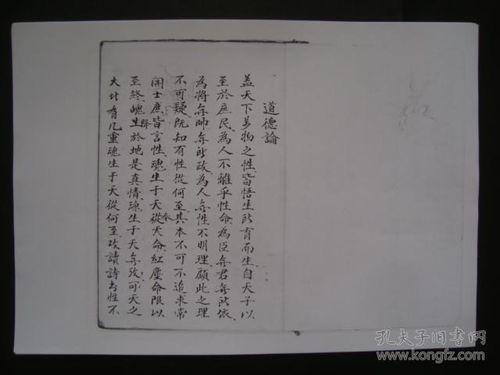 道德論
蓋天下萬物之性皆悟生所育而生自天子以
至於庶民為人不離乎性命為臣無君無所依
為將無帥無所政為人無性不明理願此之理
不可疑既知有性從何至其本不可不追求常
聞士庶皆言性魂生于天從天命紅塵命限以
至終魄生於地是真情魂生于天無改可天之
大什看几重魂生于天從何至改讀詩占性不
孔夫子旧书网
www.kongfz.com